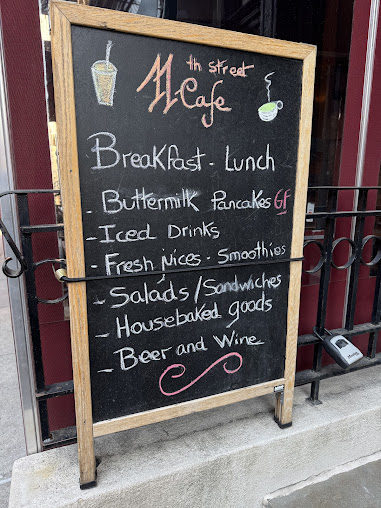 11th street
Cafe
Breakfast - Lunch
- Buttermilk Pancakes GF
- Iced Drinks
- Fresh juices - Smoothies
- Salads / Sandwiches
- Housebaked goods
- Beer and Wine